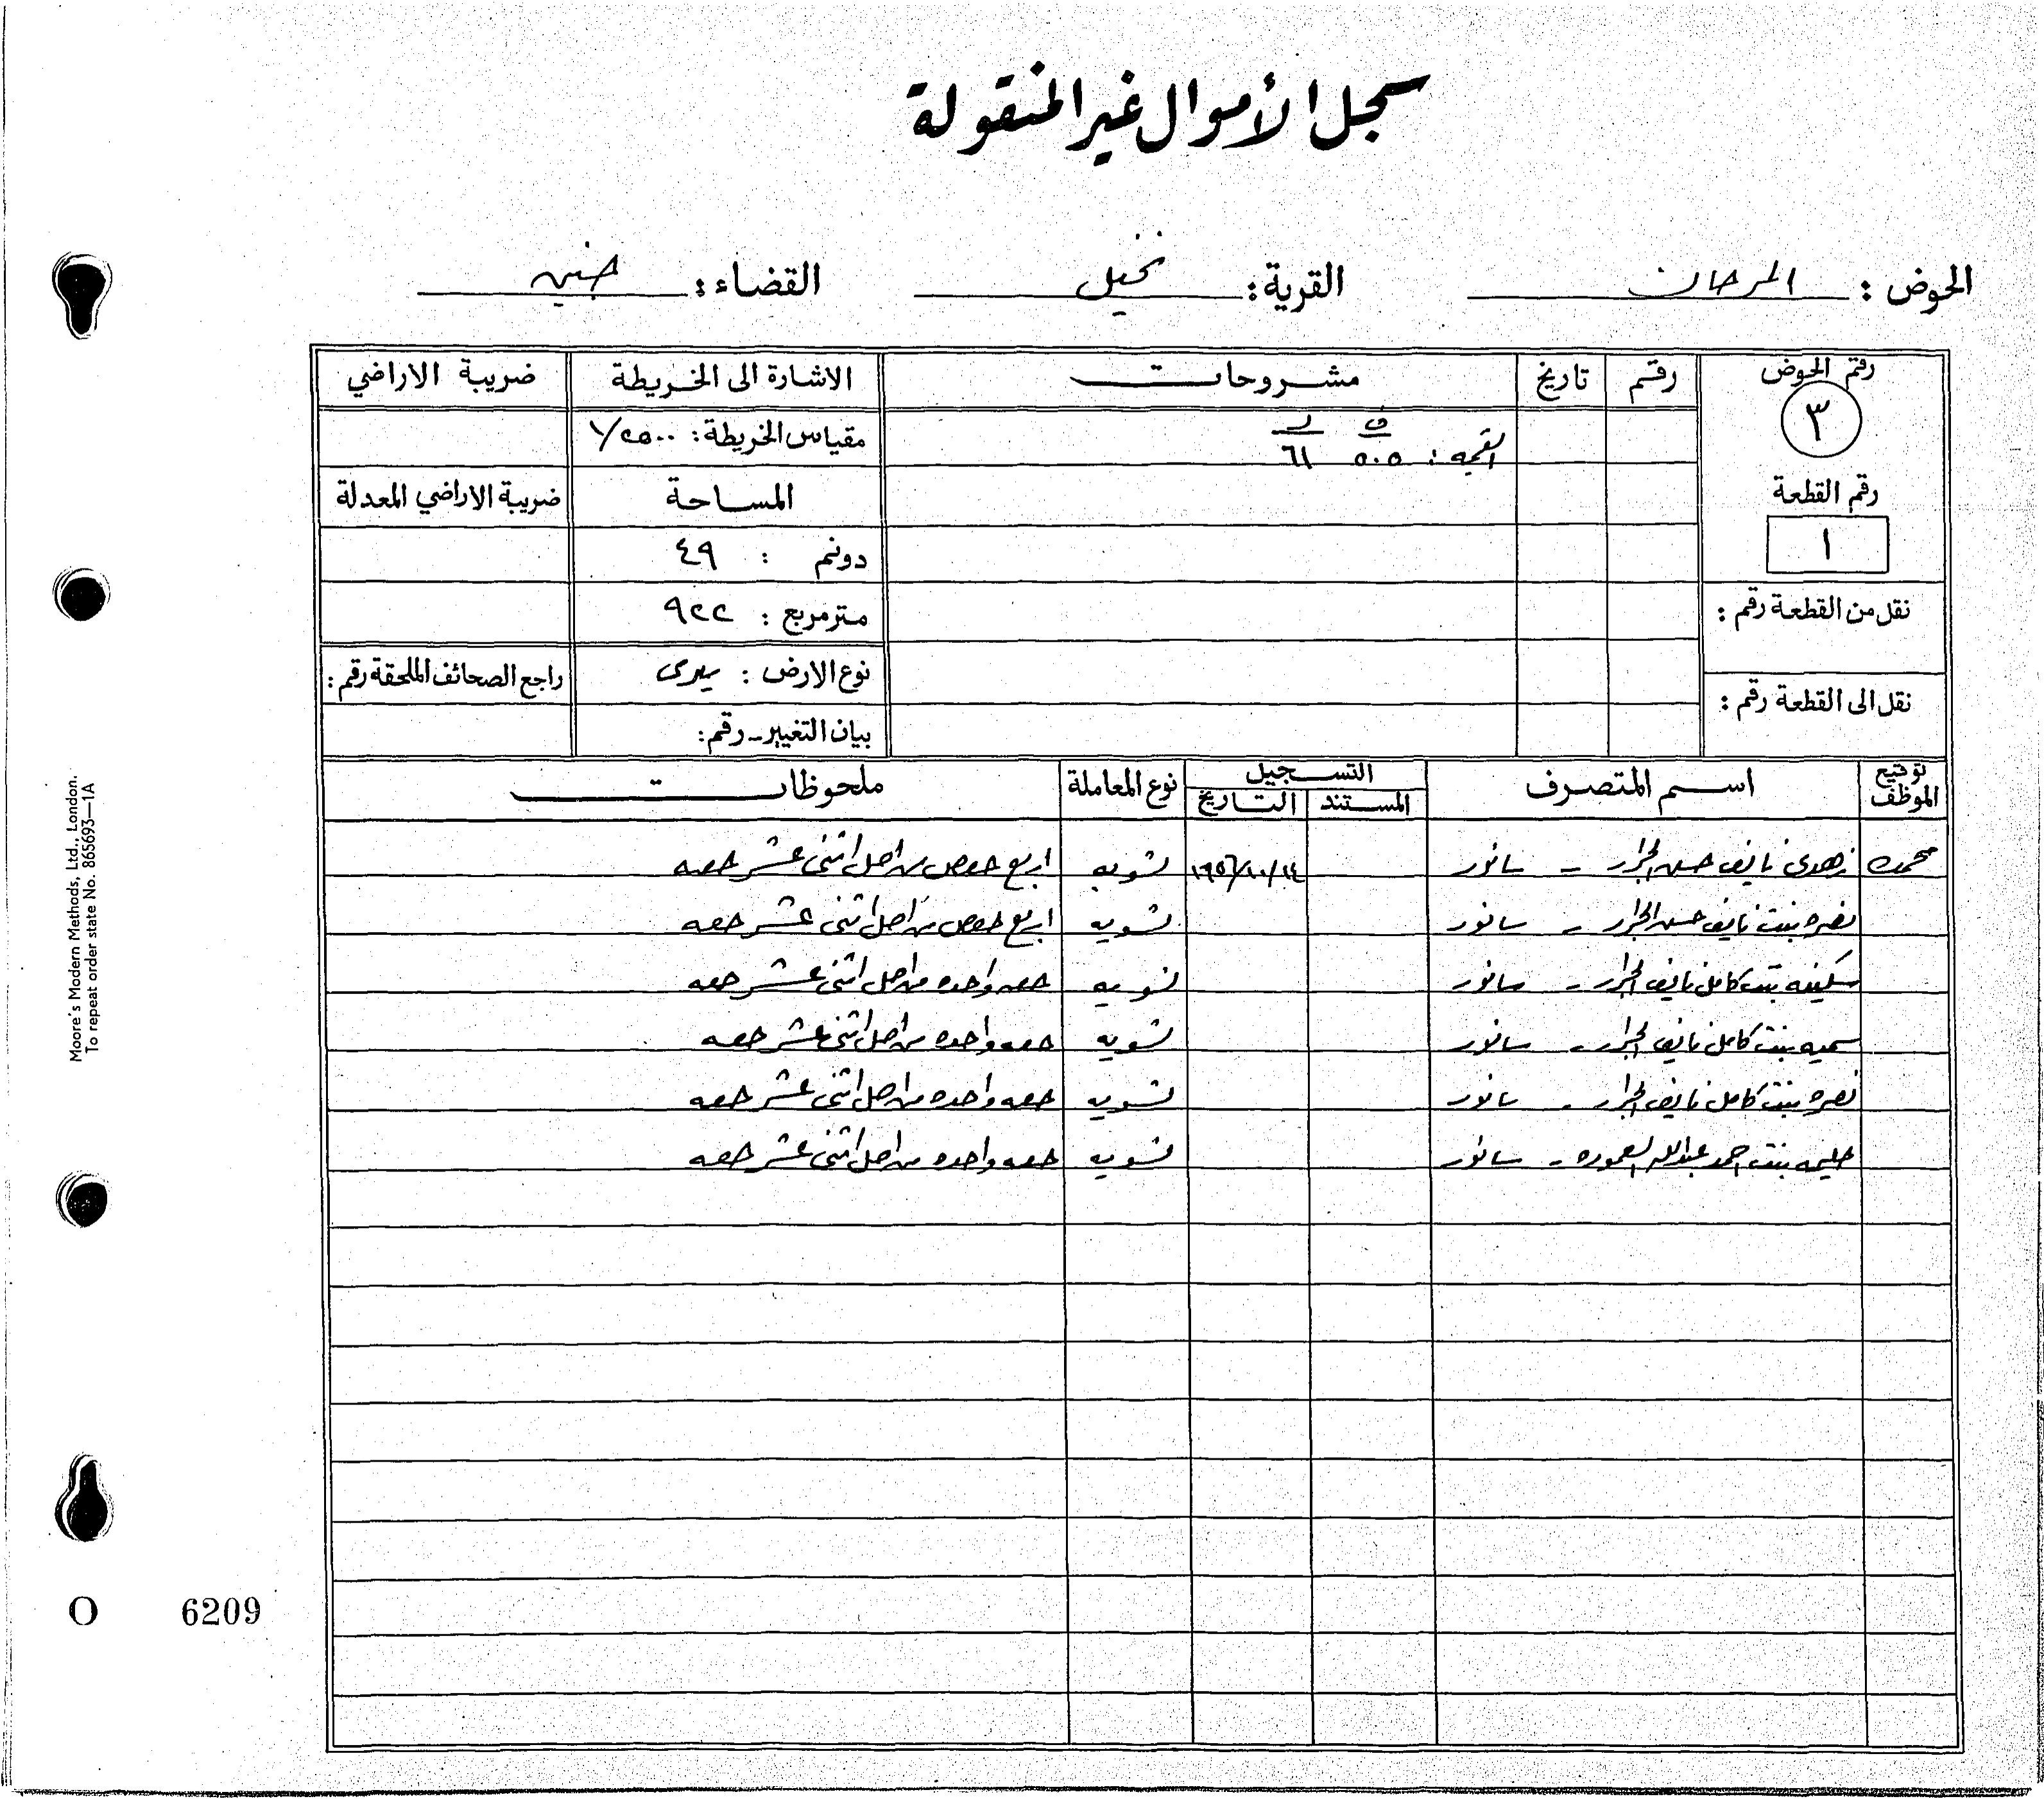 سجل الأموال غير المنقولة
الحوض : المرحان القرية : نخيل القضاء : جنين
رقم الحوض رقم تاريخ مشروحات الاشارة الى الخريطة ضريبة الاراضي
٣ القيمه : ف ٥٠٥ ل ٦١ مقياس الخريطة : ١/٢٥٠٠
رقم القطعة المساحة ضريبة الاراضي المعدلة
١ دونم : ٤٩
نقل من القطعة رقم : متر مربع : ٩٢٢
نوع الارض : ميري راجع الصحائف الملحقة رقم :
نقل الى القطعة رقم : بيان التغيير - رقم :
توقيع الموظف اسم المتصرف التسجيل نوع المعاملة ملحوظات
المستند التاريخ
زهدي نايف حسن الجرار - سانور ١٩٥٦/١٠/١٤ تسويه اربع حصص من اصل اثنى عشر حصه
نصره بنت نايف حسن الجرار - سانور تسويه اربع حصص من اصل اثنى عشر حصه
سكينه بنت كامل نايف الجرار - سانور تسويه حصه واحده من اصل اثنى عشر حصه
سميه بنت كامل نايف الجرار - سانور تسويه حصه واحده من اصل اثنى عشر حصه
نصره بنت كامل نايف الجرار - سانور تسويه حصه واحده من اصل اثنى عشر حصه
حليمه بنت احمد عبدالله العموره - سانور تسويه حصه واحده من اصل اثنى عشر حصه
Moore's Modern Methods, Ltd., London.
To repeat order state No. 865693—1A
O 6209